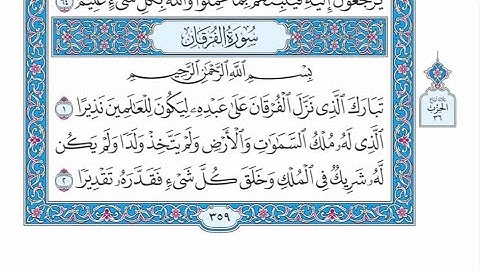 يُرْجَعُونَ إِلَيْهِ فَيُنَبِّئُهُم بِمَا عَمِلُوا۟ وَٱللَّهُ بِكُلِّ شَىْءٍ عَلِيمٌۢ ٦٤
سُورَةُ الفُرْقَان
بِسْمِ ٱللَّهِ ٱلرَّحْمَٰنِ ٱلرَّحِيمِ
تَبَارَكَ ٱلَّذِى نَزَّلَ ٱلْفُرْقَانَ عَلَىٰ عَبْدِهِۦ لِيَكُونَ لِلْعَٰلَمِينَ نَذِيرًا ١
ٱلَّذِى لَهُۥ مُلْكُ ٱلسَّمَٰوَٰتِ وَٱلْأَرْضِ وَلَمْ يَتَّخِذْ وَلَدًا وَلَمْ يَكُن
لَّهُۥ شَرِيكٌ فِى ٱلْمُلْكِ وَخَلَقَ كُلَّ شَىْءٍ فَقَدَّرَهُۥ تَقْدِيرًا ٢
الحزب
٣٦
٣٥٩